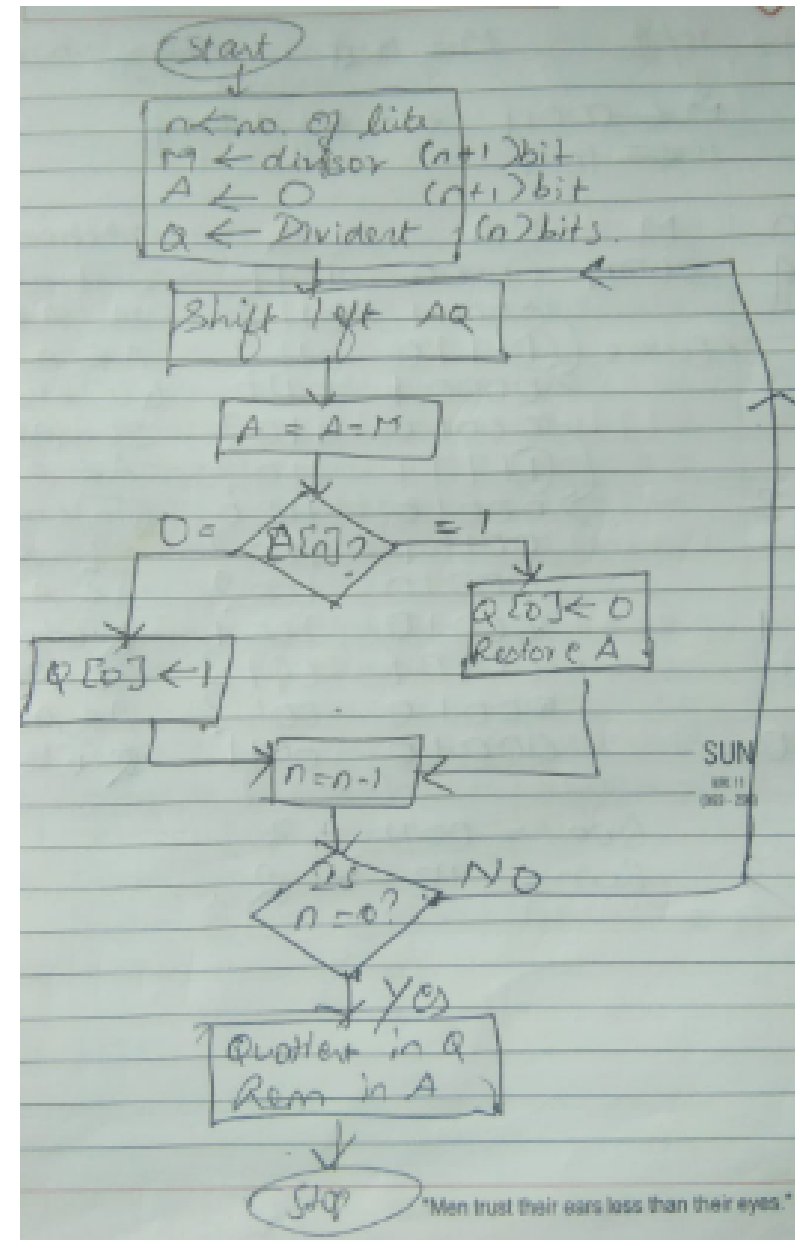 Start
n ← no. of bits
M ← divisor (n+1) bit
A ← 0 (n+1) bit
Q ← Divident (n) bits.
Shift left AQ
A = A - M
0 =
A[n]?
= 1
Q[0] ← 0
Restore A
Q[0] ← 1
n = n-1
SUN
Is
n = 0?
NO
Yes
Quotient in Q
Rem in A
Stop
"Men trust their ears less than their eyes."